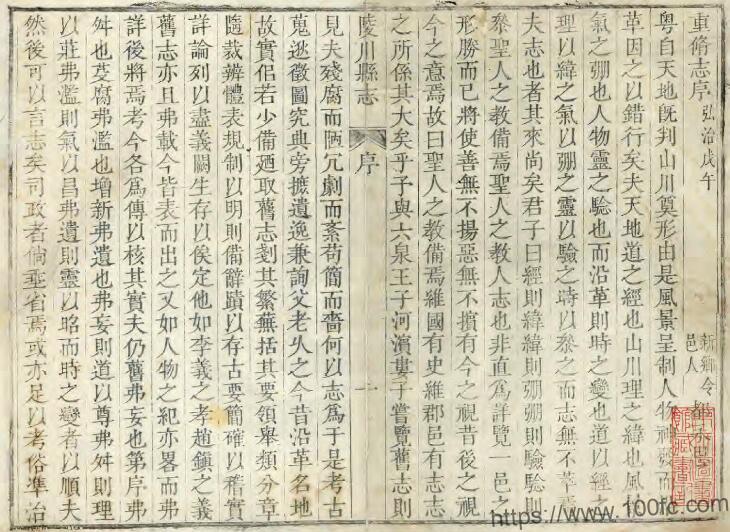 重脩志序 弘治戊午 新鄉令 邑人
粵自天地旣判山川奠形由是風景呈制人物神發而
革因之以錯行矣夫天地道之經也山川理之緯也風
氣之弸也人物靈之驗也而沿革則時之變也道以經之
理以緯之氣以弸之靈以驗之時以叅之而志無不
夫志也者其來尚矣君子曰經則緯緯則弸弸則驗驗則
叅聖人之教備焉聖人之教人志也非直爲詳覽一邑之
形勝而已將使善無不揚惡無不擯有今之視昔後之視
今之意焉故曰聖人之教備焉維國有史維郡邑有志志
之所係其大矣乎予與六泉王子河濱婁子嘗覽舊志則
陵川縣志 序 一
見夫殘腐而陋冗劇而紊苟簡而嗇何以志爲于是考古
蒐逖徵圖究典旁摭遺逸兼詢父老乆之今昔沿革名地
故實侶若少備廼取舊志剗其繁蕪括其要領舉類分章
隨裁辨體表規制以明則備辭蹟以存古要簡確以稽實
詳論列以盡義闕生存以俟定他如李義之孝趙鎭之義
舊志亦且弗載今皆表而出之又如人物之紀亦畧而弗
詳後將焉考今各爲傳以核其實夫仍舊弗妄也第序弗
舛也芟腐弗濫也增新弗遺也弗妄則道以尊弗舛則理
以莊弗濫則氣以昌弗遺則靈以昭而時之變者以順夫
然後可以言志矣司政者倘垂省焉或亦足以考俗準治
https://www.100fc.com